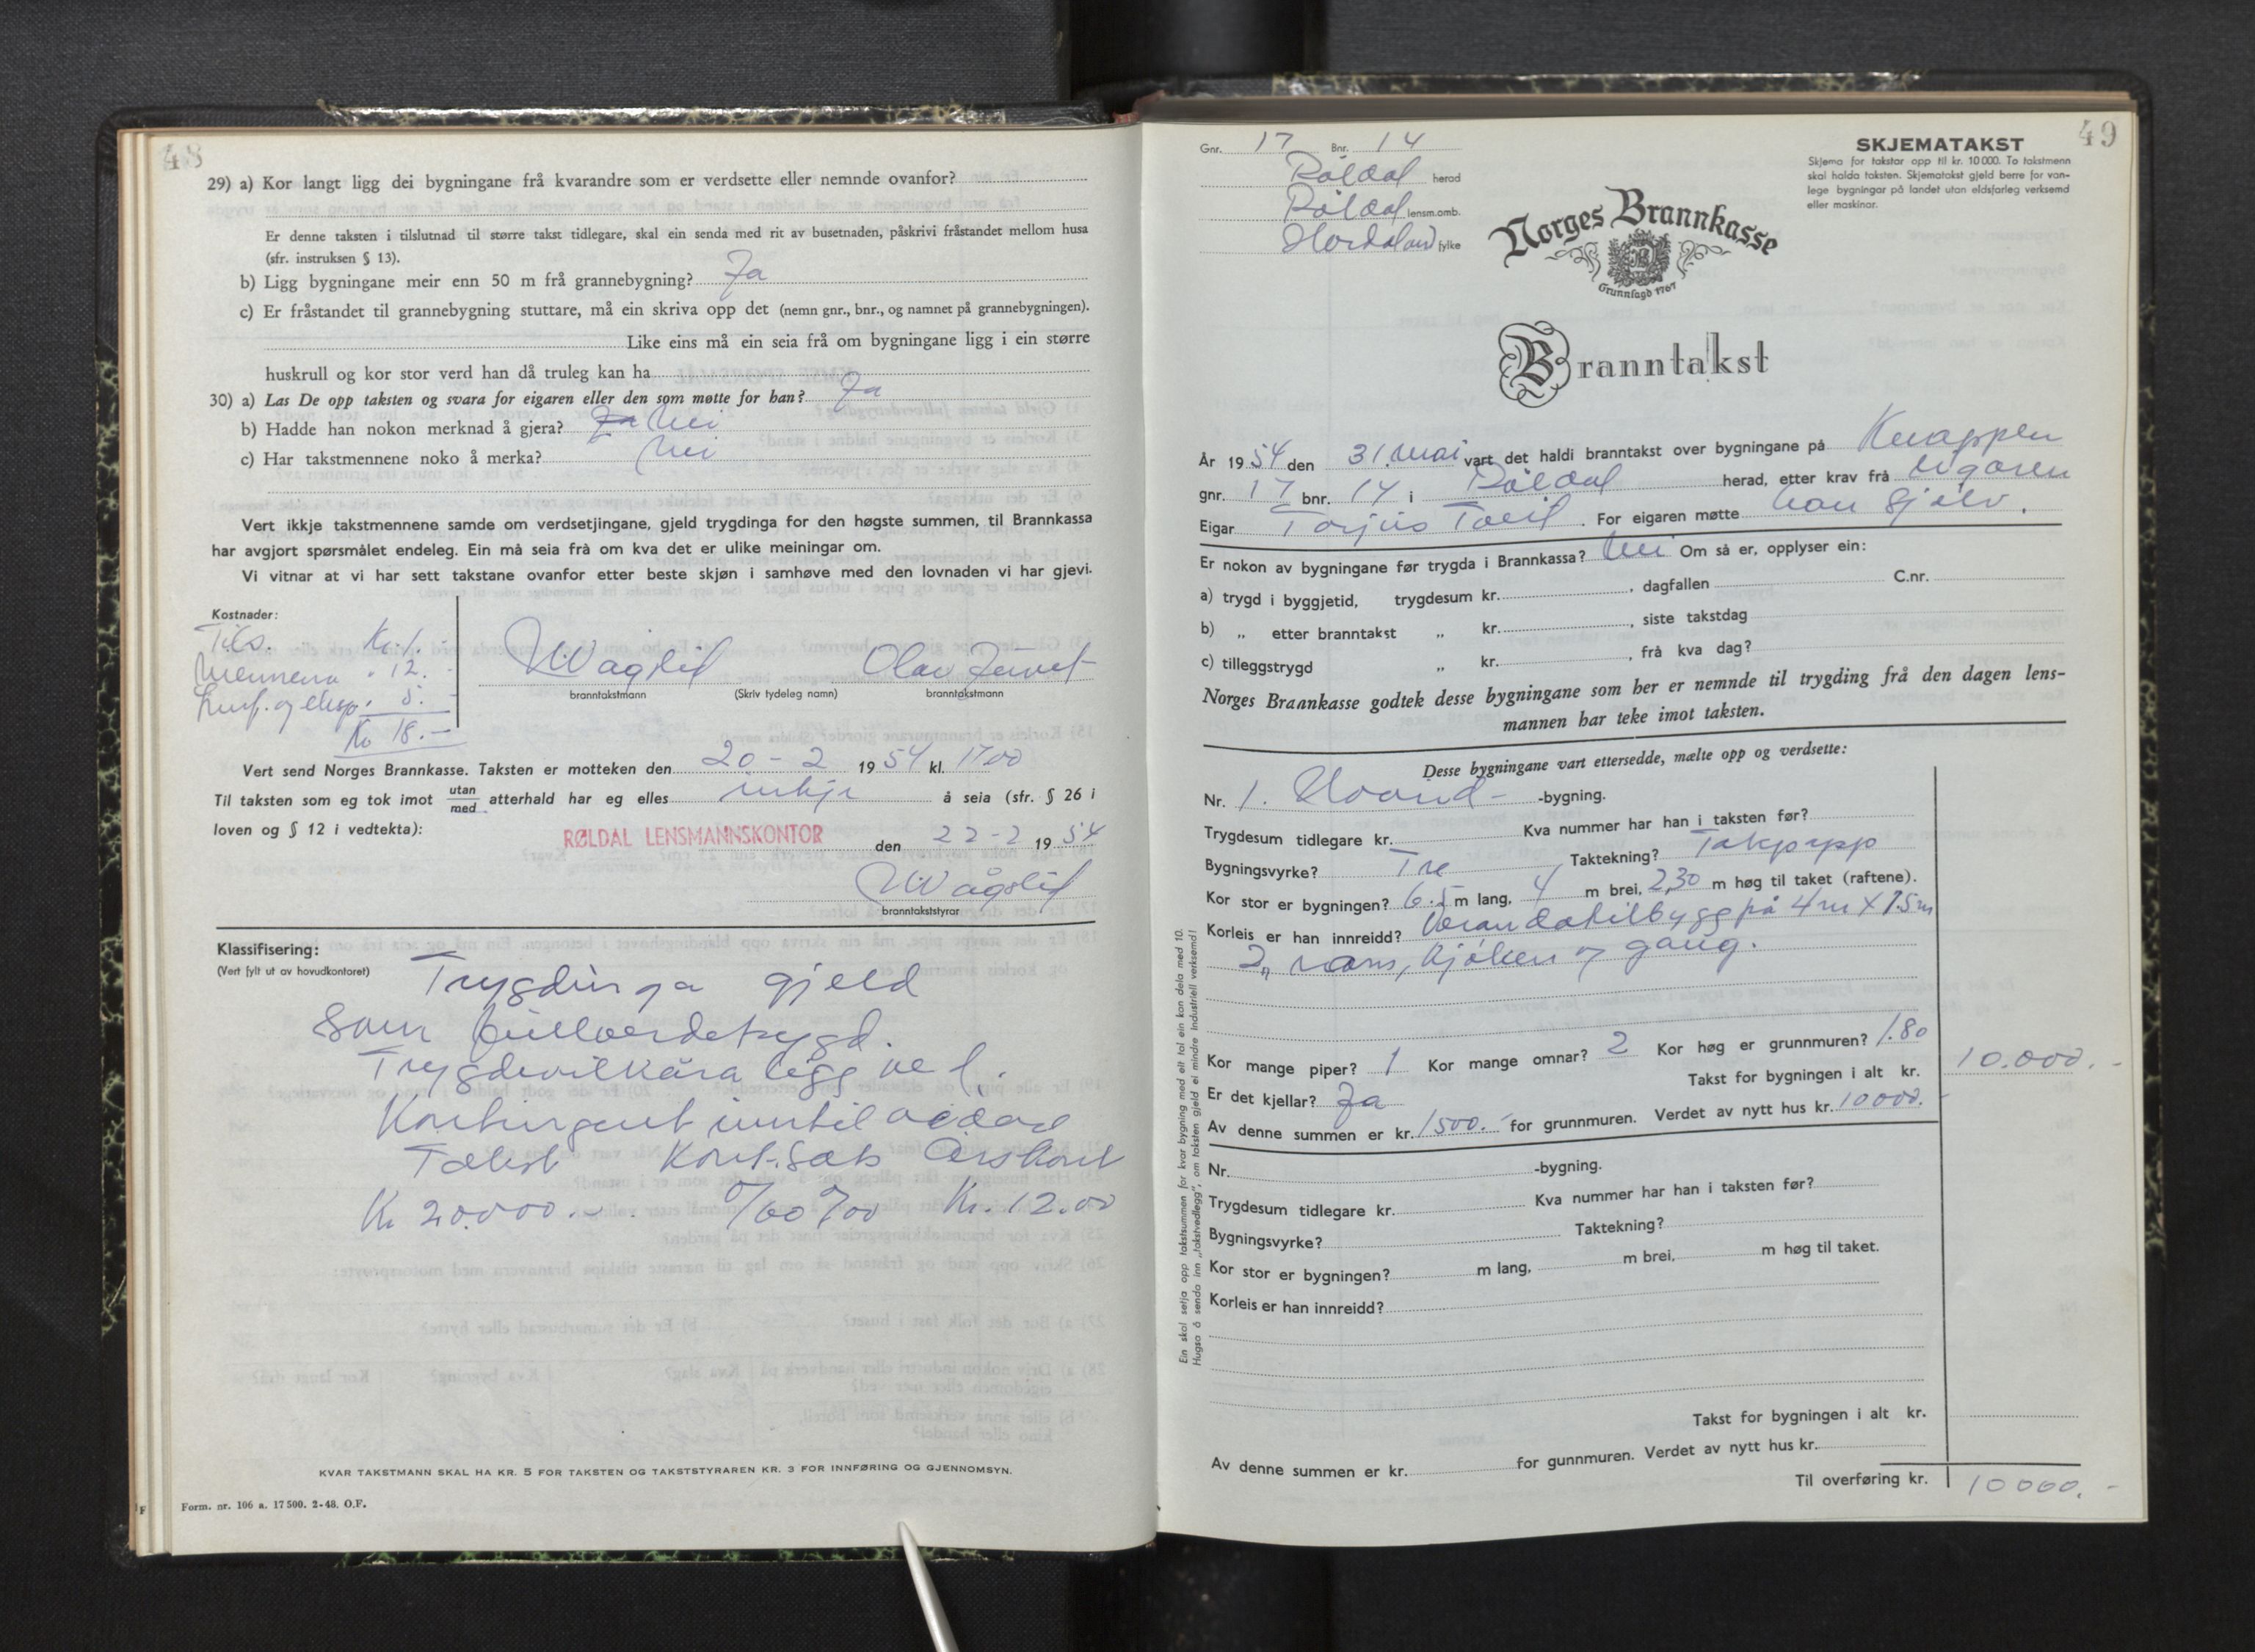 48
29) a) Kor langt ligg dei bygningane frå kvarandre som er verdsette eller nemnde ovanfor?
Er denne taksten i tilslutnad til større takst tidlegare, skal ein senda med rit av busetnaden, påskrivi fråstandet mellom husa
(sfr. instruksen § 13).
b) Ligg bygningane meir enn 50 m frå grannebygning? Ja
c) Er fråstandet til grannebygning stuttare, må ein skriva opp det (nemn gnr., bnr., og namnet på grannebygningen).
Like eins må ein seia frå om bygningane ligg i ein større
huskrull og kor stor verd han då truleg kan ha
30) a) Las De opp taksten og svara for eigaren eller den som møtte for han? Ja
b) Hadde han nokon merknad å gjera? Ja Nei
c) Har takstmennene noko å merka? Nei
Vert ikkje takstmennene samde om verdsetjingane, gjeld trygdinga for den høgste summen, til Brannkassa
har avgjort spørsmålet endeleg. Ein må seia frå om kva det er ulike meiningar om.
Vi vitnar at vi har sett takstane ovanfor etter beste skjøn i samhøve med den lovnaden vi har gjevi.
Kostnader:
Tils. Kr. 1.
Mennena " 12. -
Innf. og eksp. " 5. -
Kr 18. -
Wågslid Olav Juvet
branntakstmann (Skriv tydeleg namn) branntakstmann
Vert send Norges Brannkasse. Taksten er motteken den 20 - 2 1954 kl. 1700
Til taksten som eg tok imot utan/med atterhald har eg elles inkje å seia (sfr. § 26 i
loven og § 12 i vedtekta):
RØLDAL LENSMANNSKONTOR den 22 - 2 1954
Wågslid
branntakststyrar
Klassifisering:
(Vert fylt ut av hovudkontoret)
Trygdinga gjeld
som fullverdetrygd.
Trygdevilkåra legg ve l.
Kontingent inntil vidare
Takst Kont.sats Årskont
Kr 20.000.- 0/60 0/00 Kr. 12.00
KVAR TAKSTMANN SKAL HA KR. 5 FOR TAKSTEN OG TAKSTSTYRAREN KR. 3 FOR INNFØRING OG GJENNOMSYN.
Form. nr. 106 a. 17 500. 2-48. O.F.
49
Gnr. 17 Bnr. 14
Röldal herad
Röldal lensm.omb.
Hordaland fylke
SKJEMATAKST
Skjema for takstar opp til kr. 10 000. To takstmenn
skal halda taksten. Skjematakst gjeld berre for van-
lege bygningar på landet utan eldsfarleg verksemd
eller maskinar.
Norges Brannkasse
Grunnlagd 1767
Branntakst
År 1954 den 31. mai vart det haldi branntakst over bygningane på Knappen
gnr. 17 bnr. 14 i Röldal herad, etter krav frå eigaren
Eigar Torjus Tveit. For eigaren møtte han sjølv.
Er nokon av bygningane før trygda i Brannkassa? Nei Om så er, opplyser ein:
a) trygd i byggjetid, trygdesum kr. , dagfallen C.nr.
b) „ etter branntakst „ kr. , siste takstdag
c) tilleggstrygd „ kr. , frå kva dag?
Norges Brannkasse godtek desse bygningane som her er nemnde til trygding frå den dagen lens-
mannen har teke imot taksten.
Desse bygningane vart ettersedde, mælte opp og verdsette:
Nr. 1. Vaand- -bygning.
Trygdesum tidlegare kr. Kva nummer har han i taksten før?
Bygningsvyrke? Tre Taktekning? Takpapp
Kor stor er bygningen? 6.5 m lang, 4 m brei, 2,30 m høg til taket (raftene).
Korleis er han innreidd? Verandatilbygg på 4m x 1.5m
2 rom, kjøken og gang.
Kor mange piper? 1 Kor mange omnar? 2 Kor høg er grunnmuren? 1.80
Takst for bygningen i alt kr. 10.000.-
Er det kjellar? Ja
Av denne summen er kr. 1500.- for grunnmuren. Verdet av nytt hus kr. 10000.-
Nr. -bygning.
Trygdesum tidlegare kr. Kva nummer har han i taksten før?
Bygningsvyrke? Taktekning?
Kor stor er bygningen? m lang, m brei, m høg til taket.
Korleis er han innreidd?
Takst for bygningen i alt kr.
Av denne summen er kr. for gunnmuren. Verdet av nytt hus kr.
Til overføring kr. 10000.-
Ein skal setja opp takstsummen for kvar bygning med eit tal ein kan dela med 10.
Hugsa å senda inn „takstvedlegg", om taksten gjeld ei mindre industriell verksemd!